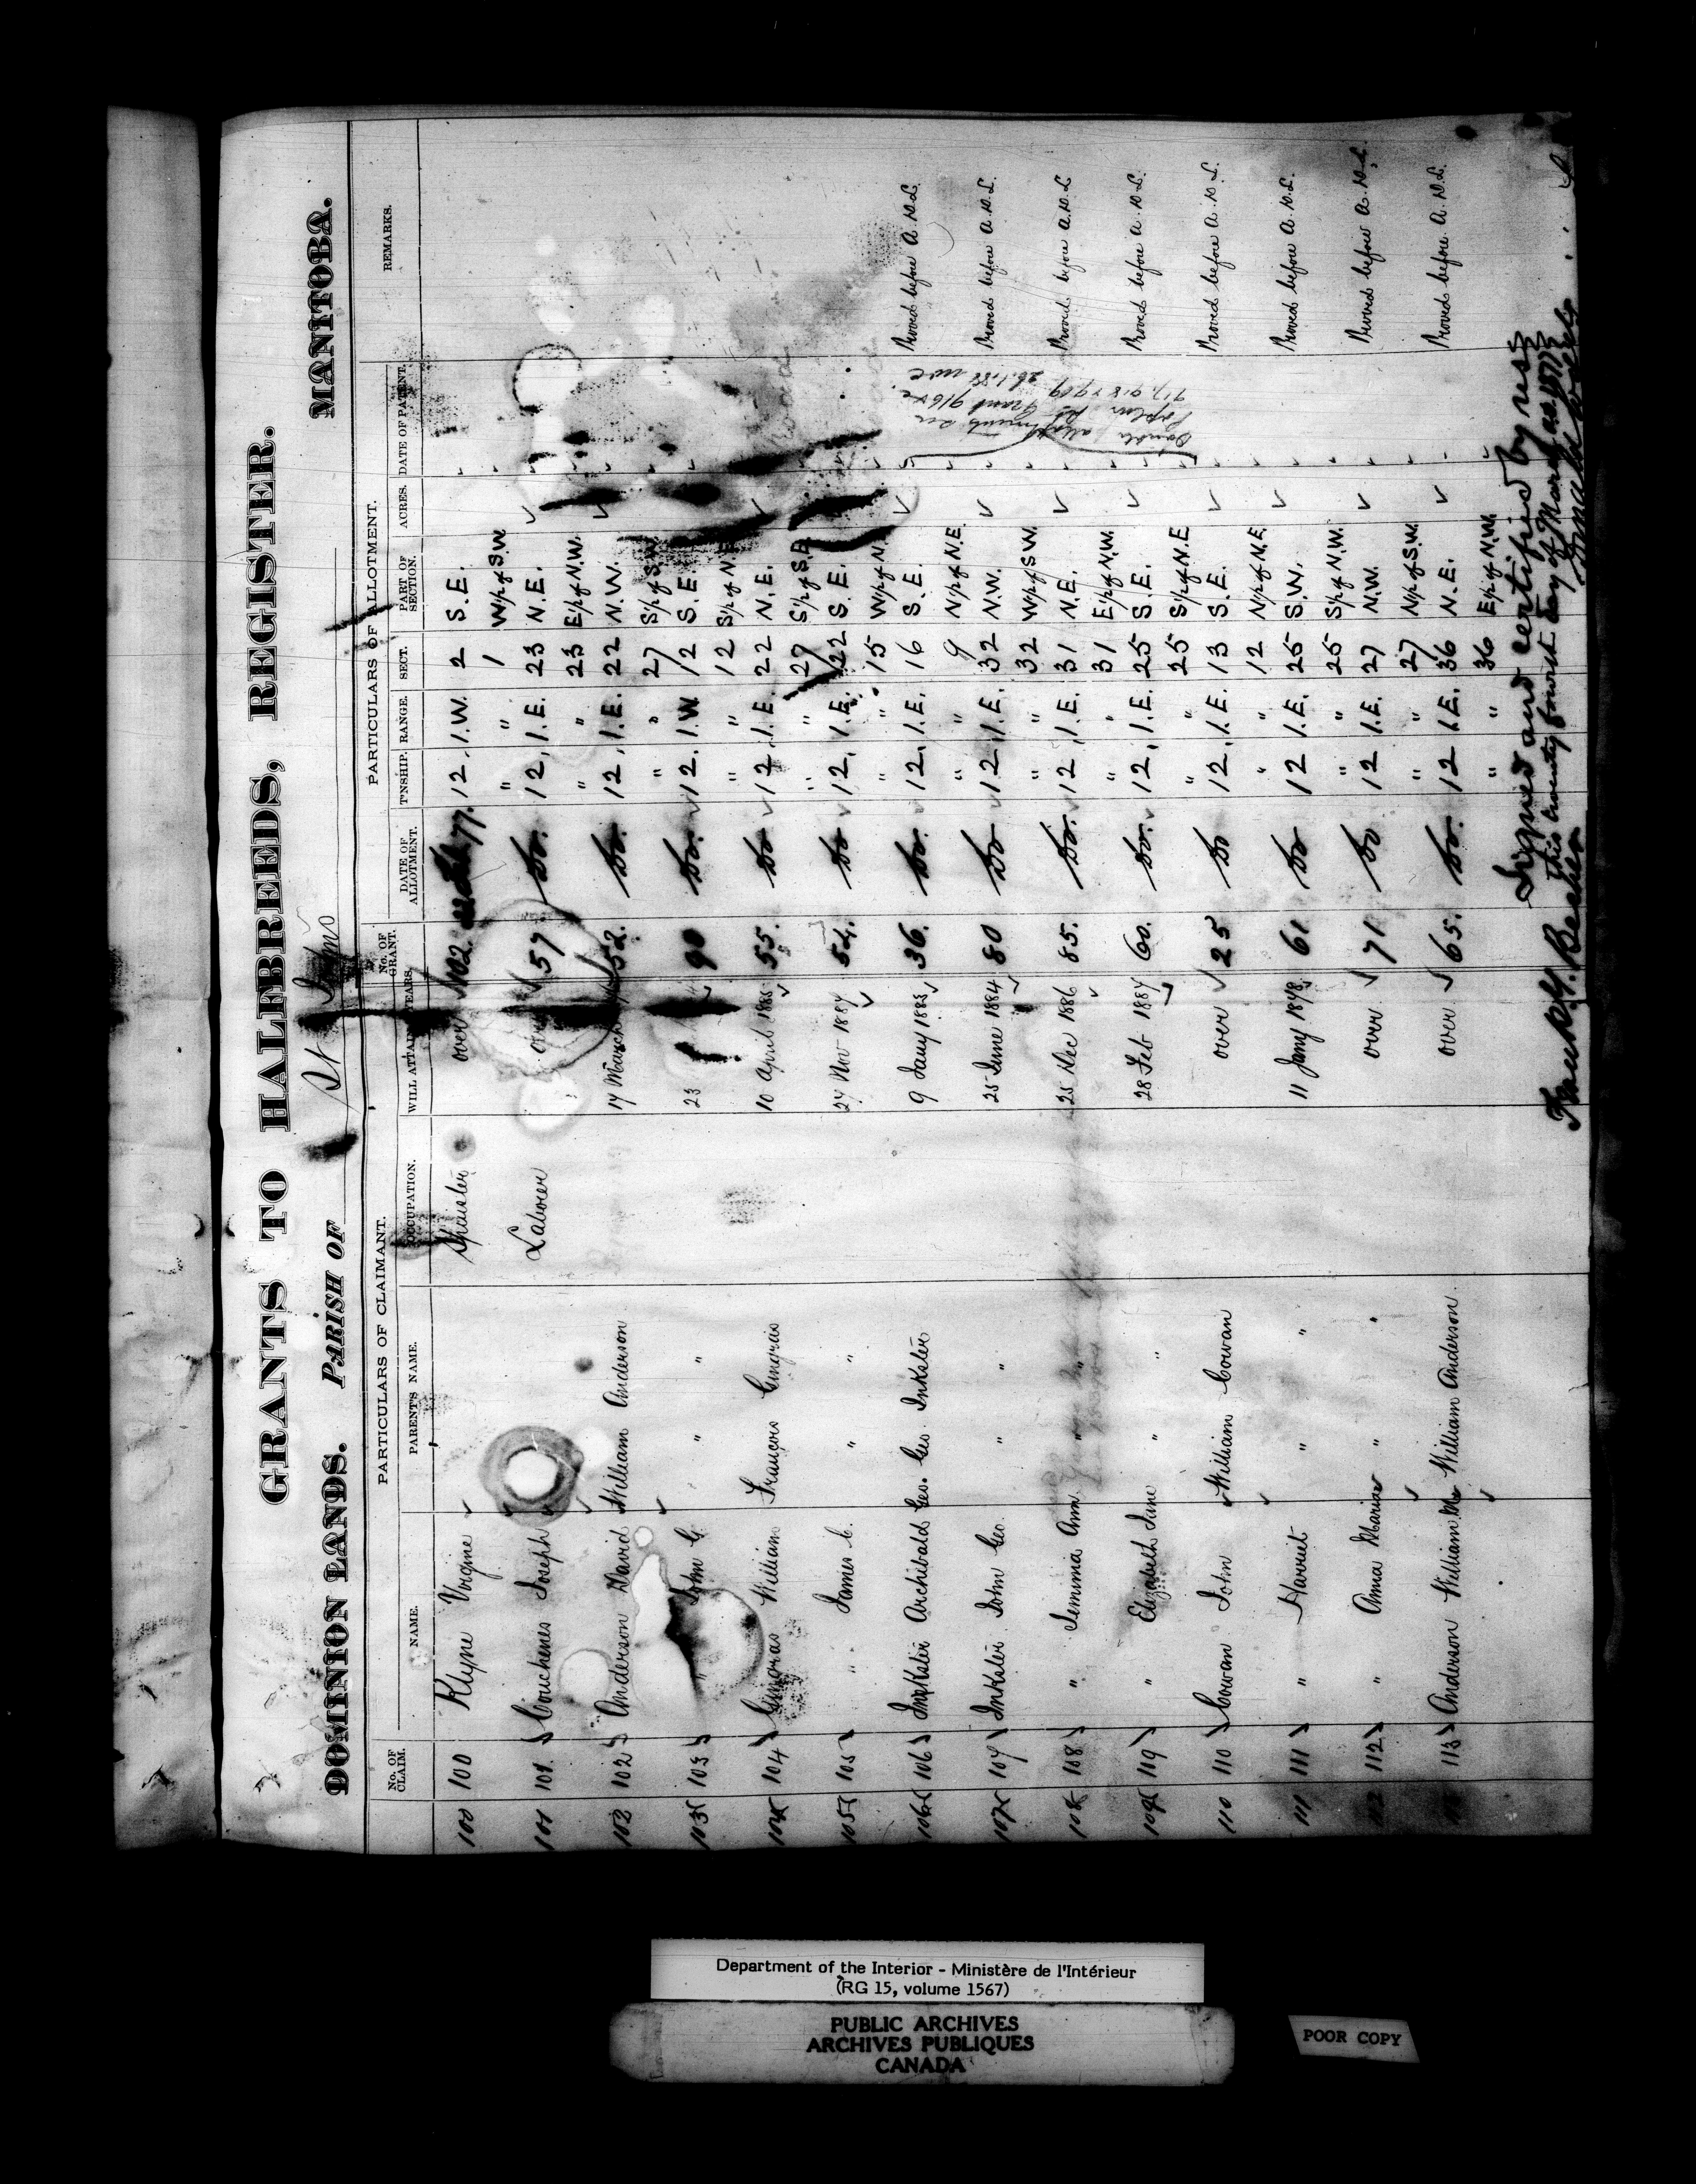 GRANTS TO HALFBREEDS, REGISTER.
DOMINION LANDS. PARISH OF St Johns MANITOBA.
PARTICULARS OF CLAIMANT. PARTICULARS OF ALLOTMENT.
No. OF CLAIM. NAME. PARENT'S NAME. OCCUPATION. WILL ATTAIN YEARS. No. OF GRANT. DATE OF ALLOTMENT. T'NSHIP. RANGE. SECT. PART OF SECTION. ACRES. DATE OF PATENT. REMARKS.
100 100 Klyne Virgine Spinster over 102. 77. 12 1.W. 2 S.E.
" " 1 W½ of S.W.
101 101. Couchenes Joseph Laborer 57 Do. 12 1.E. 23 N.E.
" " 23 E½ of N.W.
102 102 Anderson David William Anderson 17 March 52. Do. 12 1.E. 22 N.W.
" " 27 S½ of S.W.
103 103 " John G. " " 23 90 Do. 12 1.W. 12 S.E.
" " 12 S½ of N.E.
104 104 Gingras William Francois Gingras 10 April 1885 55. Do 12 1.E. 22 N.E.
" " 27 S½ of S.E.
105 105 " James C. " " 27 Nov 1887 54. Do 12 1.E. 22 S.E.
" " 15 W½ of N.E.
106 106 Inkster Archibald Geo. Geo. Inkster 9 Jany 1885 36. Do. 12 1.E. 16 S.E. Proved before A.D.L.
" " 9 N½ of N.E.
107 107 Inkster John Geo. " " 25 June 1884 80 Do 12 1.E. 32 N.W. Proved before A.D.L.
" " 32 W½ of S.W.
108 108 " Jemima Ann " " 25 Dec 1886 85. Do. 12 1.E. 31 N.E. Proved before A.D.L
" " 31 E½ of N.W.
109 109 " Elizabeth Jane " " 28 Feb 1887 60. Do. 12 1.E. 25 S.E. Proved before A.D.L.
" " 25 S½ of N.E
110 110 Cowan John William Cowan over 25 Do 12 1.E. 13 S.E. Proved before A.D.L.
" " 12 N½ of N.E.
111 111 " Harriet " " 11 Jany 1878 61 Do 12 1.E. 25 S.W. Proved before A.D.L.
" " 25 S½ of N.W.
112 112 " Anna Maria " " over 71 Do 12 1.E. 27 N.W. Proved before A.D.L.
" " 27 N½ of S.W.
113 Anderson William Mc William Anderson. over 65. Do. 12 1.E. 36 N.E. Proved before A.D.L.
" " 36 E½ of N.W.
Double allotments
Signed and certified by us
this twenty fourth day of March AD 1877
Department of the Interior - Ministère de l'Intérieur
(RG 15, volume 1567)
PUBLIC ARCHIVES
ARCHIVES PUBLIQUES
CANADA
POOR COPY